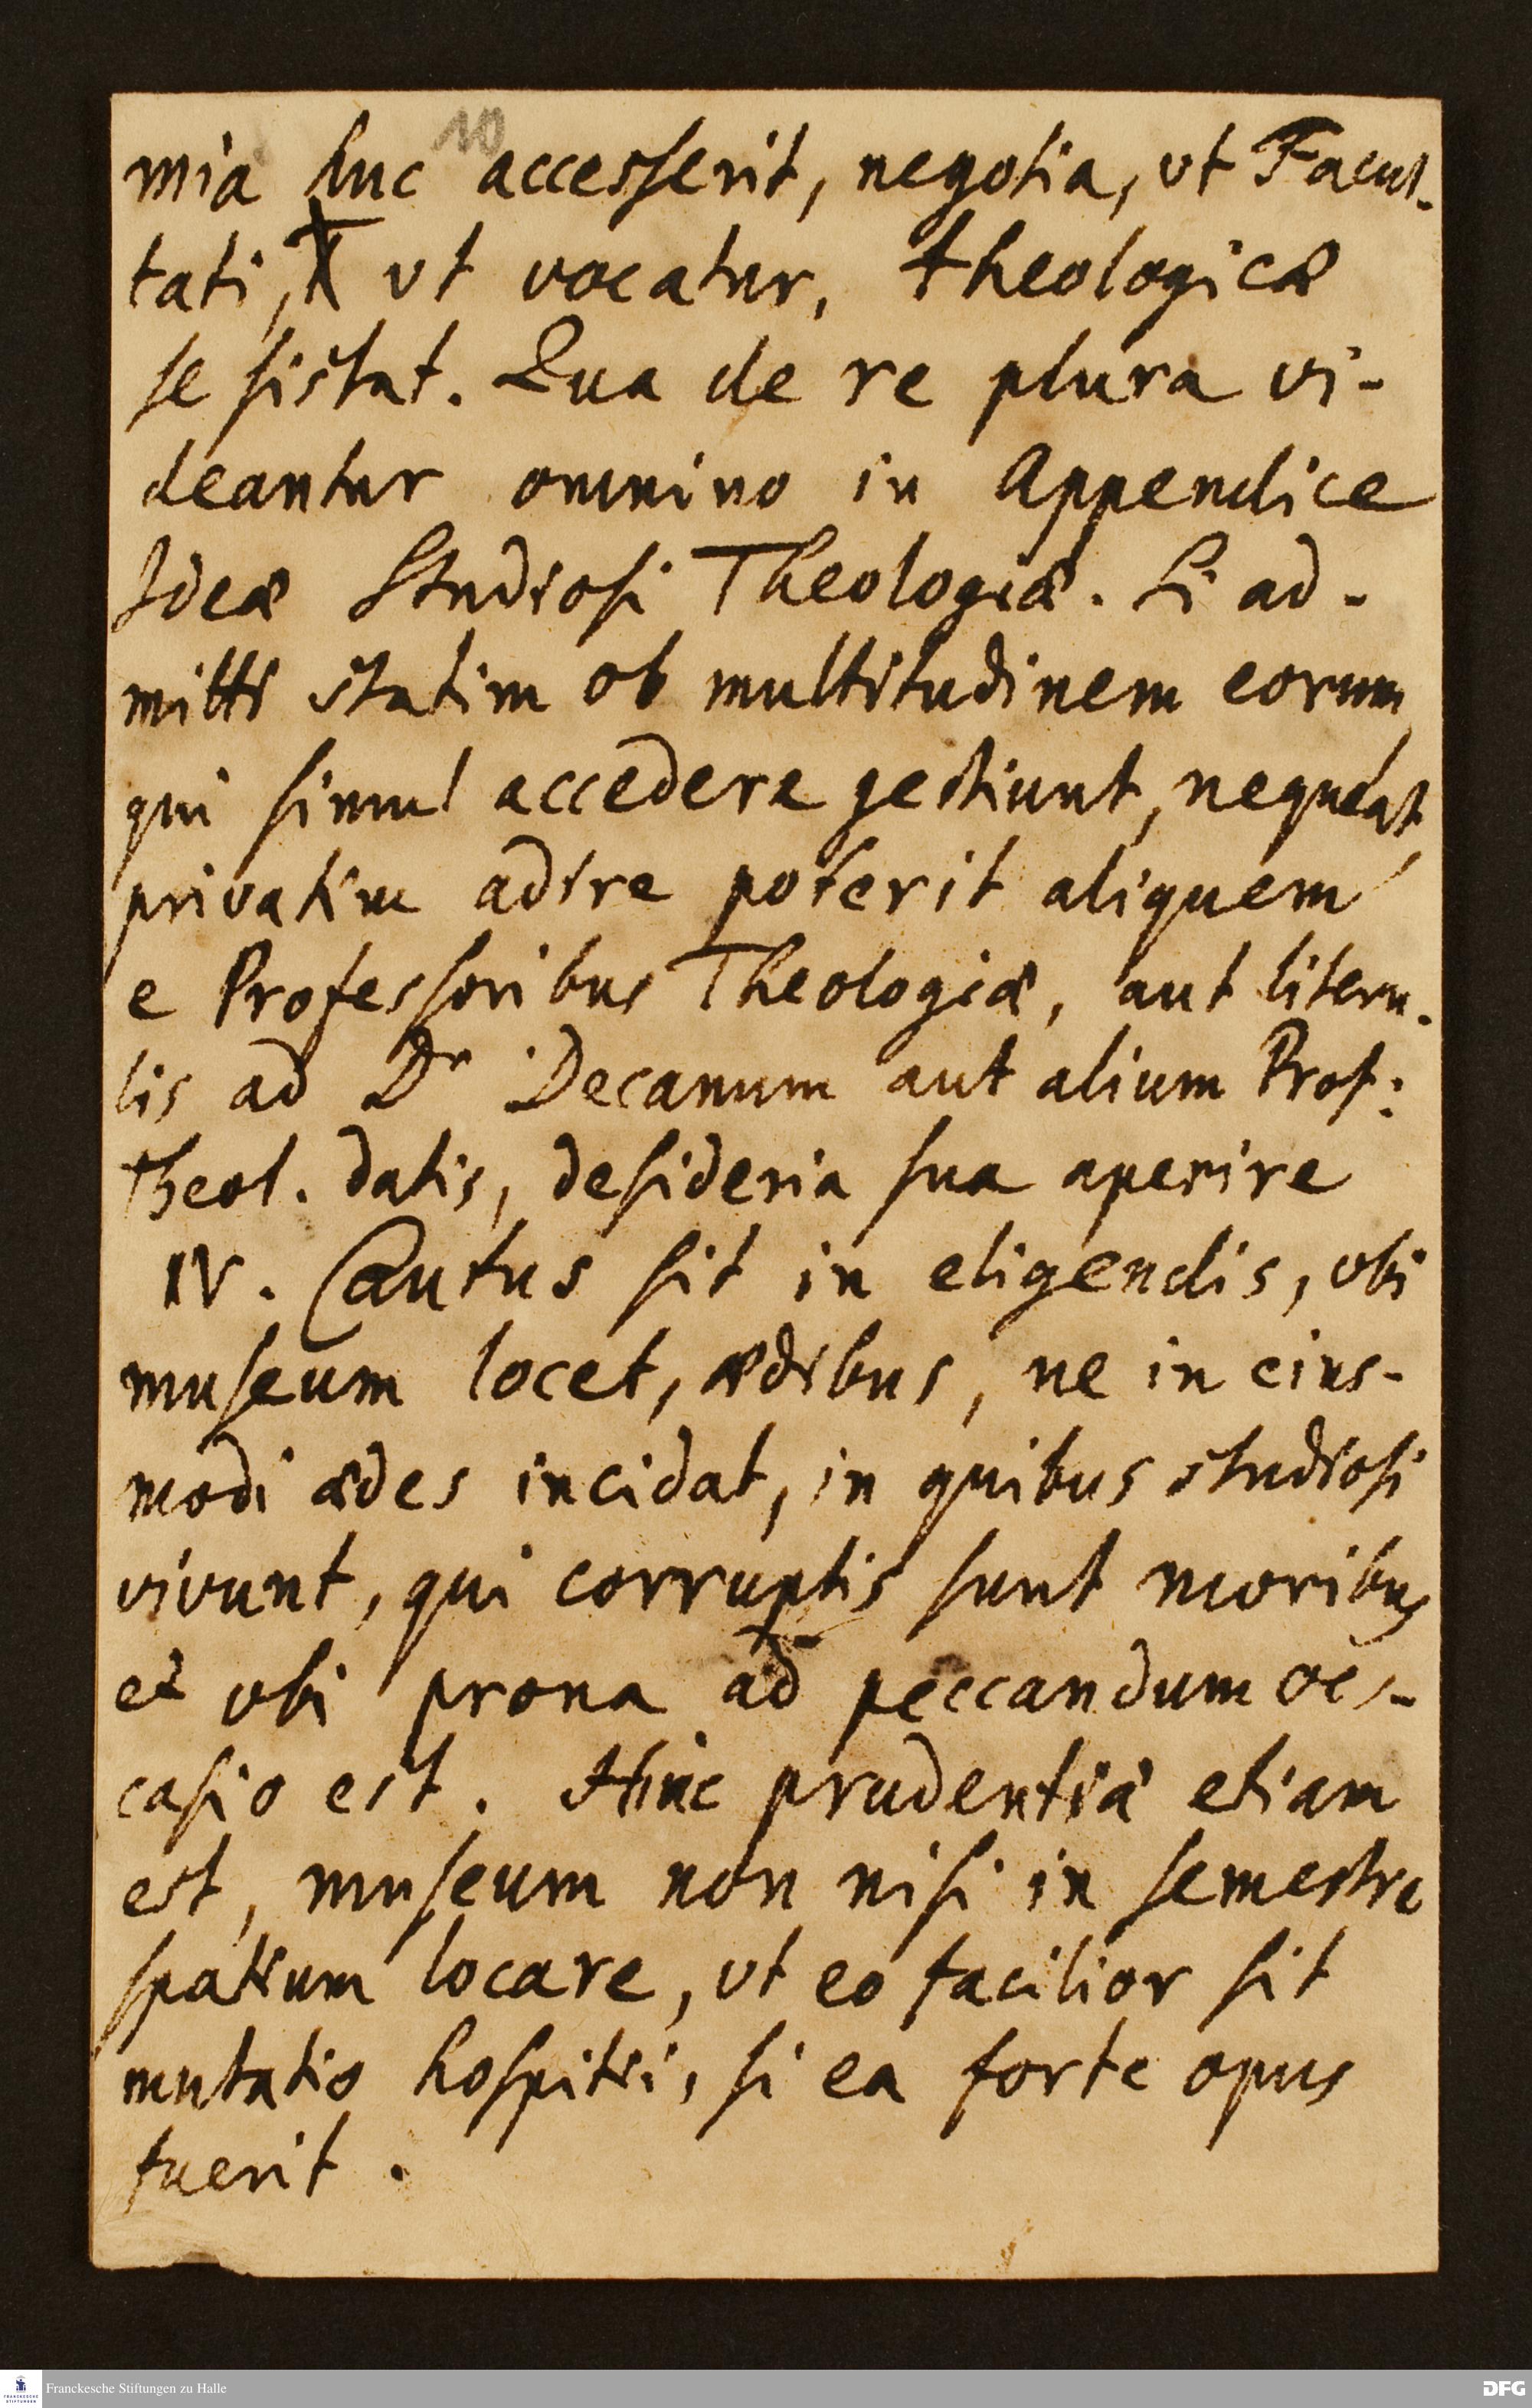 10
mia huc accesserit, negotia, vt Facul-
tati, vt vocatur, theologicæ
se sistat. Qua de re plura vi-
deantur omnino in Appendice
Ideæ Studiosi Theologiæ. Si ad-
mitti statim ob multitudinem eorum,
qui simul accedere gestiunt, nequeat,
privatim adire poterit aliquem
e Professoribus Theologiæ, aut literu-
lis ad Dn Decanum aut alium Prof:
Theol. datis, desideria sua aperire
IV. Cautus sit in eligendis, vbi
museum locet, ædibus, ne in eius-
modi ædes incidat, in quibus studiosi
vivunt, qui corruptis sunt moribus
et vbi prona ad peccandum oc-
casio est. Hinc prudentiæ etiam
est, museum non nisi in semestre
spatium locare, vt eo facilior sit
mutatio hospitii, si ea forte opus
fuerit.
Franckesche Stiftungen zu Halle
FRANCKESCHE
STIFTUNGEN
DFG